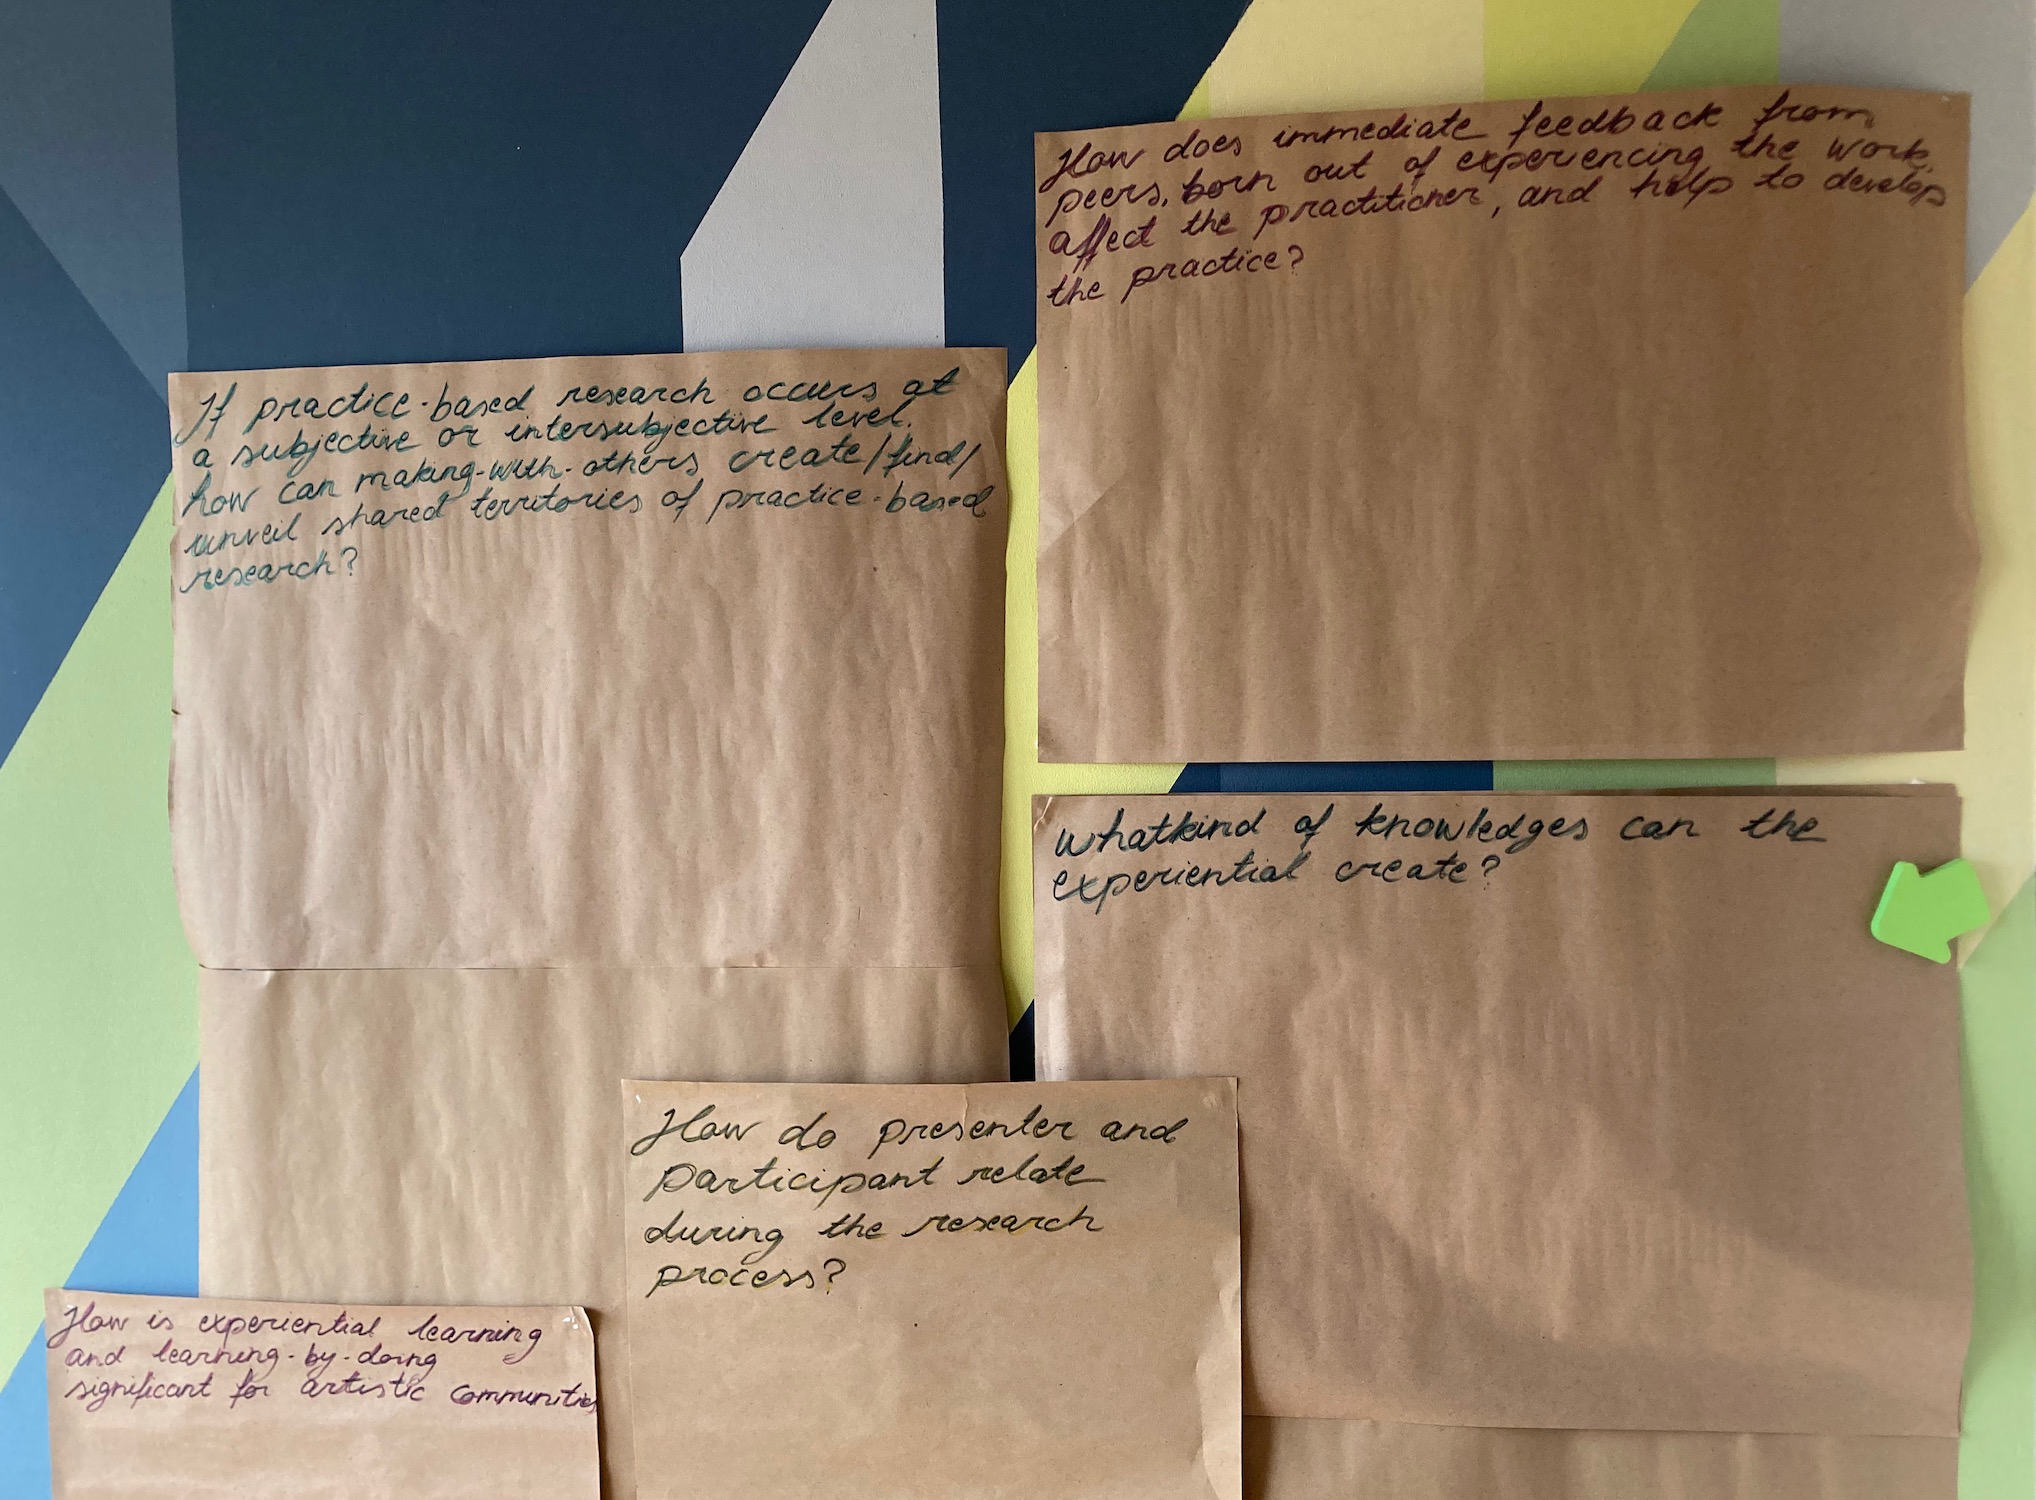 How does immediate feedback from
peers, born out of experiencing the work,
affect the practitioner, and help to develop
the practice?
If practice-based research occurs at
a subjective or intersubjective level,
how can making-with-others create/find/
unveil shared territories of practice-based
research?
Whatkind of knowledges can the
experiential create?
How do presenter and
participant relate
during the research
process?
How is experiential learning
and learning-by-doing
significant for artistic communities